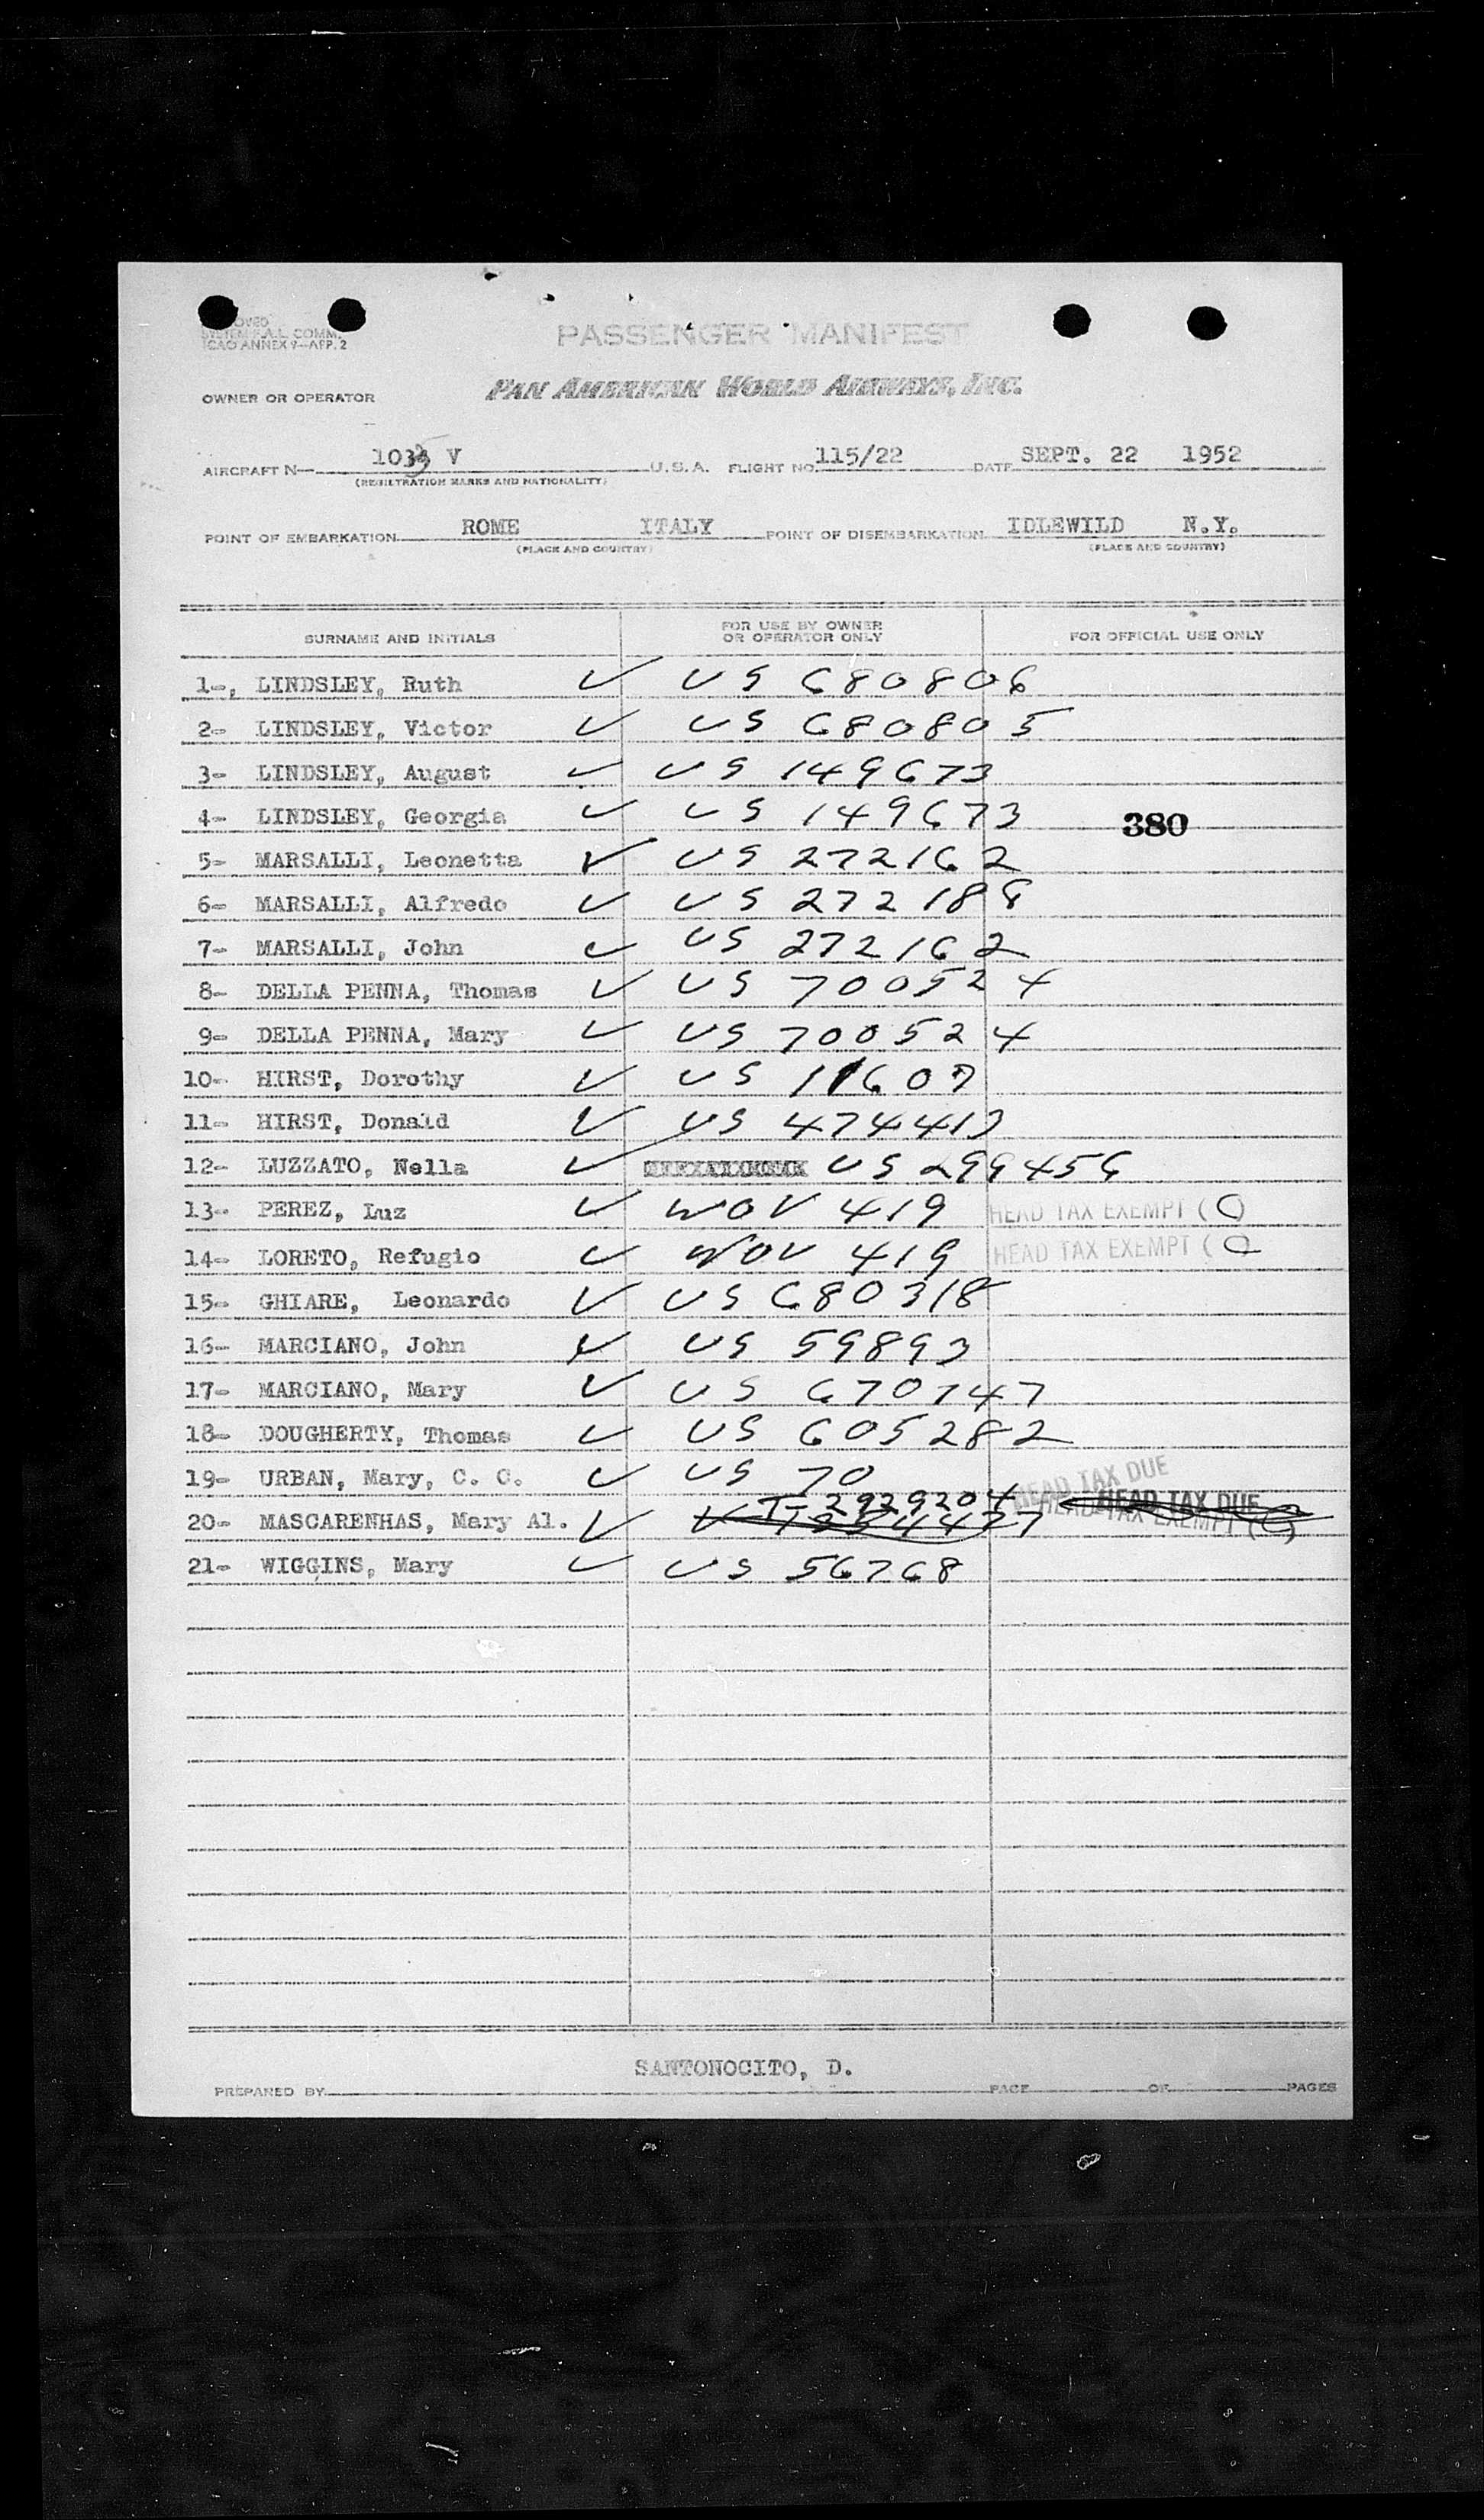 SYSTEM F.A.L. COMM.
ICAO ANNEX 9—APP. 2
PASSENGER MANIFEST
OWNER OR OPERATOR
PAN AMERICAN WORLD AIRWAYS, INC.
AIRCRAFT N— V U.S.A. FLIGHT NO. 115/22 DATE SEPT. 22 1952
(REGISTRATION MARKS AND NATIONALITY)
POINT OF EMBARKATION ROME ITALY POINT OF DISEMBARKATION IDLEWILD N.Y.
(PLACE AND COUNTRY) (PLACE AND COUNTRY)
SURNAME AND INITIALS FOR USE BY OWNER OR OPERATOR ONLY FOR OFFICIAL USE ONLY
1-, LINDSLEY, Ruth ✓ US 680806
2- LINDSLEY, Victor ✓ US 680805
3- LINDSLEY, August ✓ US 149673
4- LINDSLEY, Georgia ✓ US 149673 380
5- MARSALLI, Leonetta ✓ US 272162
6- MARSALLI, Alfredo ✓ US 272188
7- MARSALLI, John ✓ US 272162
8- DELLA PENNA, Thomas ✓ US 700524
9- DELLA PENNA, Mary ✓ US 700524
10- HIRST, Dorothy ✓ US 11607
11- HIRST, Donald ✓ US 474413
12- LUZZATO, Nella ✓ US 299456
13- PEREZ, Luz ✓ WOV 419 HEAD TAX EXEMPT (
14- LORETO, Refugio ✓ WOV 419 HEAD TAX EXEMPT (
15- GHIARE, Leonardo ✓ US 680318
16- MARCIANO, John ✓ US 59893
17- MARCIANO, Mary ✓ US 670747
18- DOUGHERTY, Thomas ✓ US 605282
19- URBAN, Mary, C. C. ✓ US 70
HEAD TAX DUE
20- MASCARENHAS, Mary Al. ✓ T-2929204 HEAD TAX DUE
HEAD TAX EXEMPT (
21- WIGGINS, Mary ✓ US 56768
SANTONOCITO, D.
PREPARED BY PAGE OF PAGES